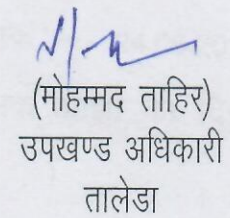 (मोहम्मद ताहिर)
उपखण्ड अधिकारी
तालेडा